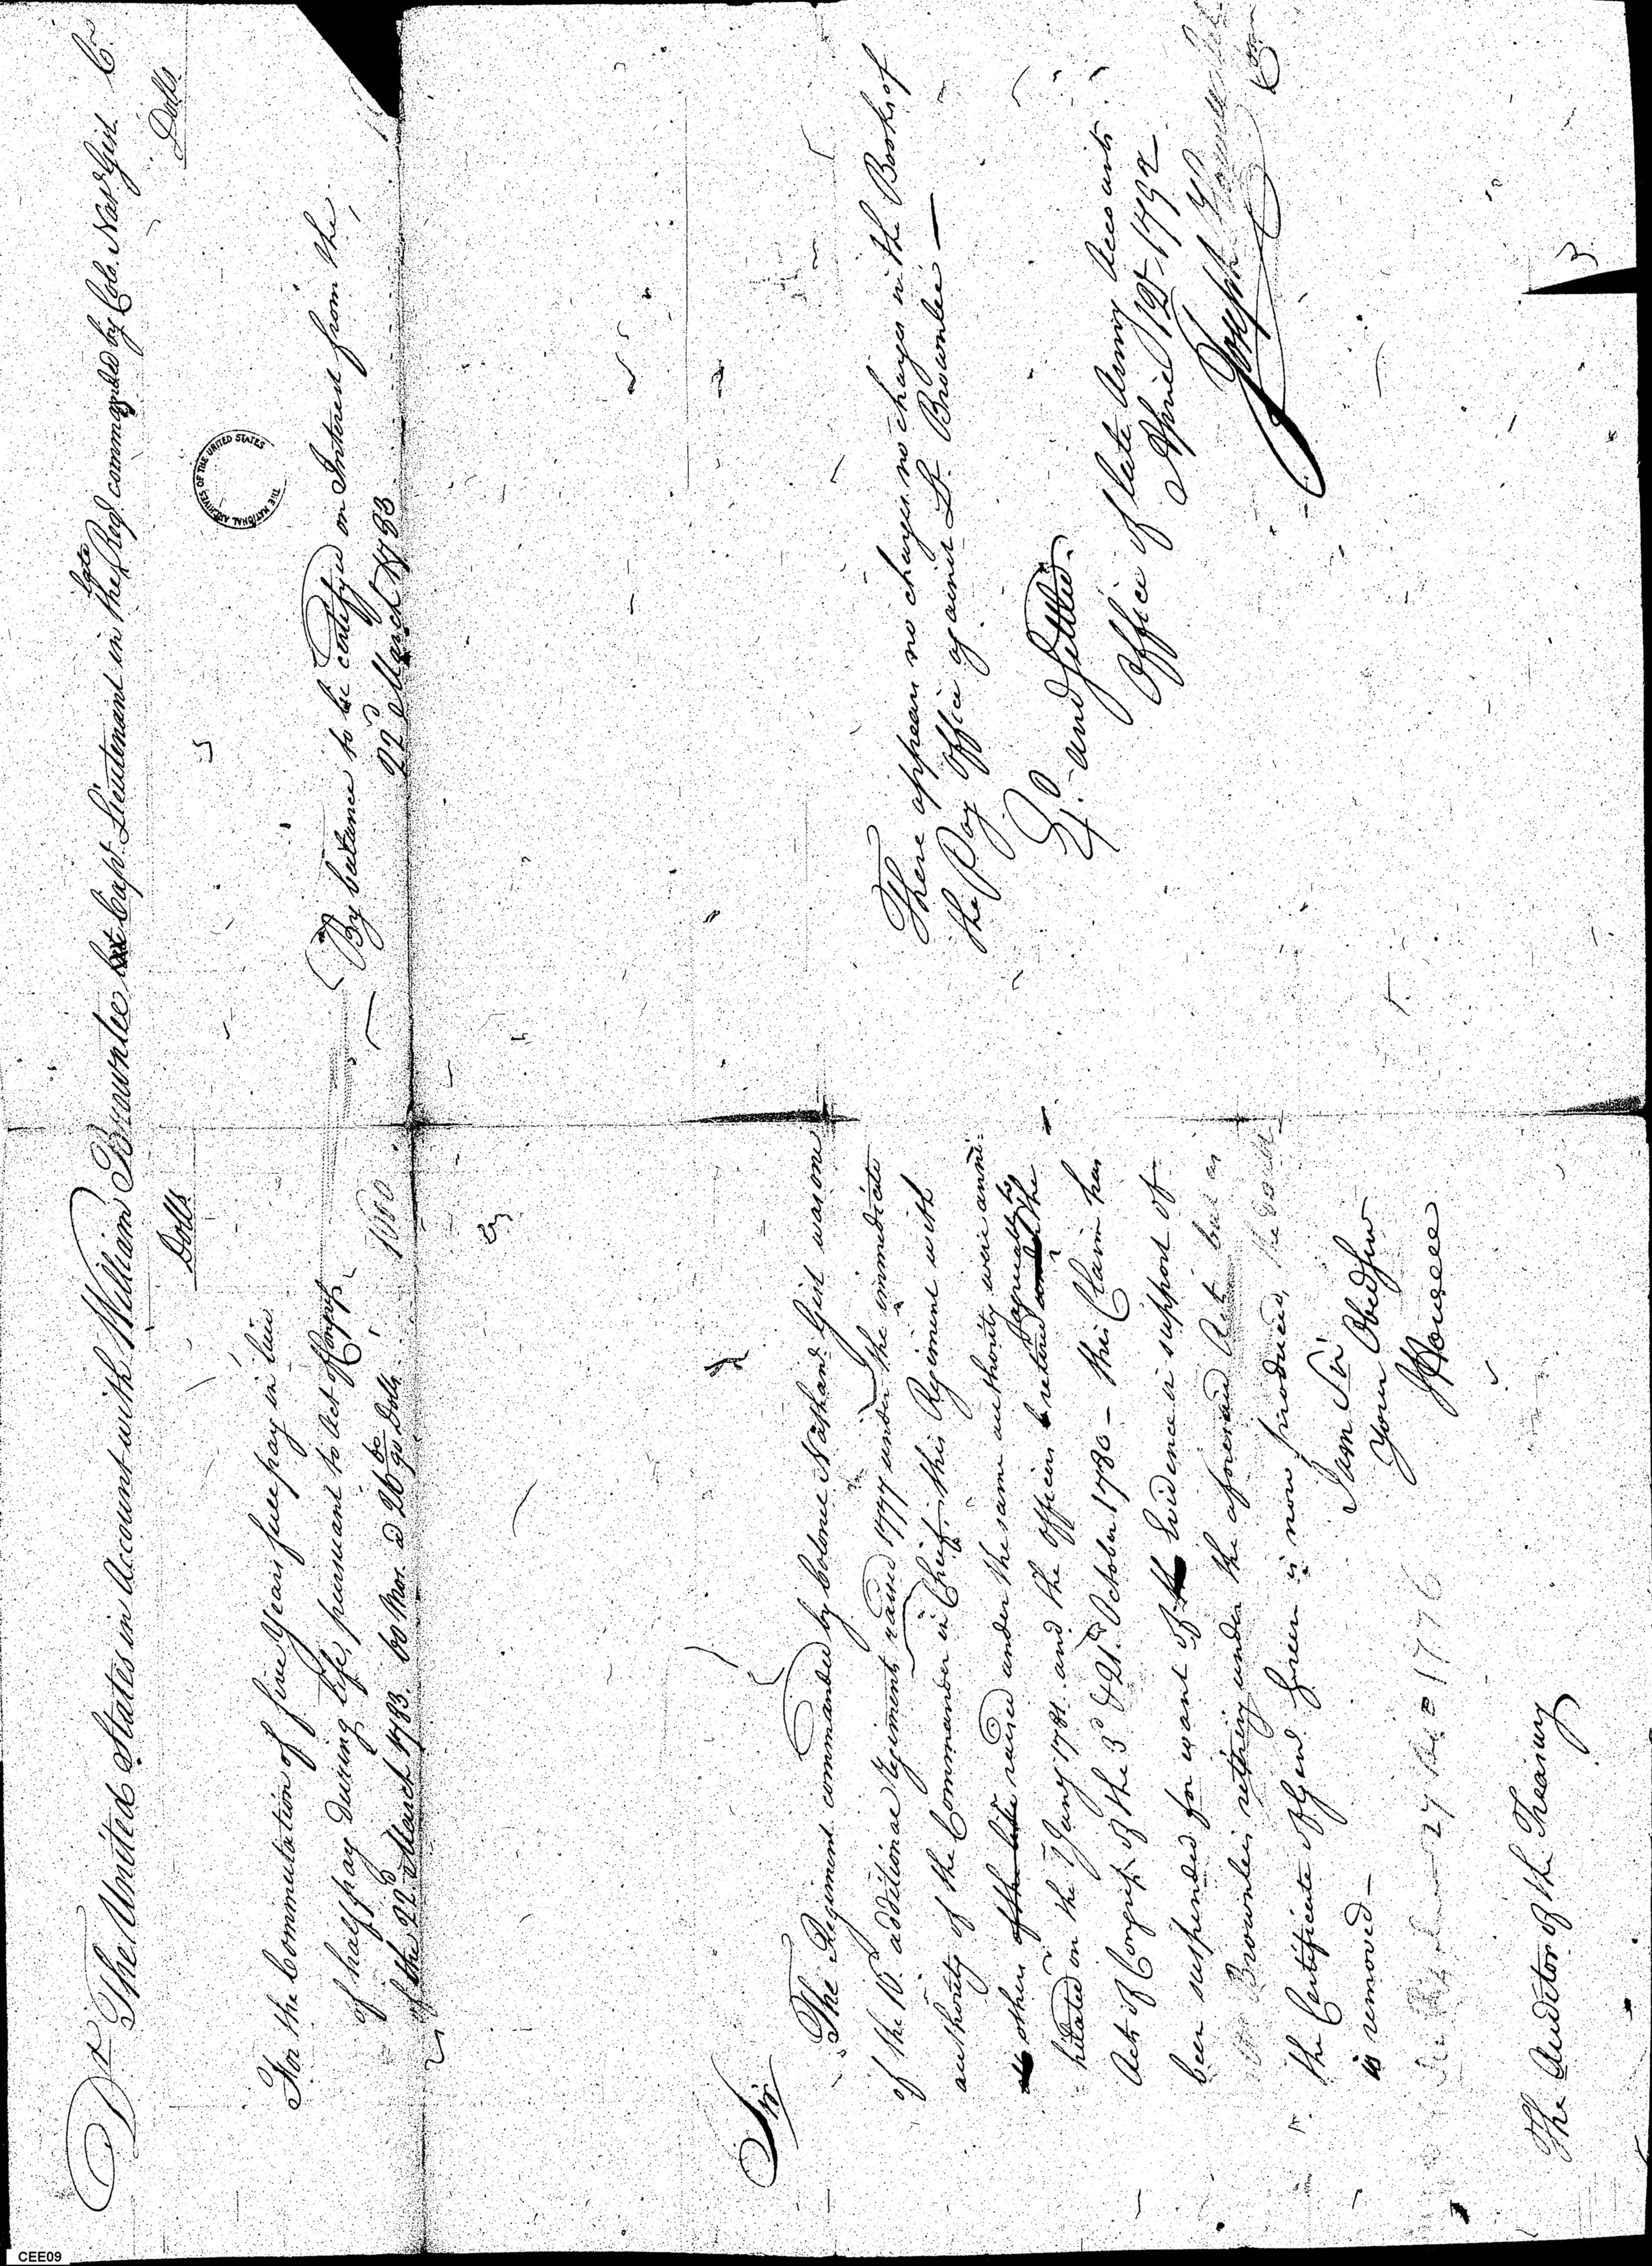 Dr The United States in Account with William Brownlee Capt. Lieutenant in the late Regt commanded by Colo. Nathl Gist Cr
Dolls
Dolls
For the Commutation of five Years full pay in lieu
of half pay during life, pursuant to Act of Congress
of the 22d March 1783. 60 Mos. @ 26 60/90 Dolls. 1600
By balance to be certifyed on Interest from the
22d March 1783
THE NATIONAL ARCHIVES OF THE UNITED STATES
Sir
The Regiment commanded by Colonel Nathanl Gist was one
of the 16 additional Regiments raised 1777 under the immediate
authority of the Commander in Chief, this Regiment with
others of the line raised under the same authority were anni-
hilated on the 1 Jany 1781. and the Officers retired agreeably to the
Acts of Congress of the 3d & 21st October 1780 - this Claim has
been suspended for want of the Evidence in support of
Brownlee's retiring under the aforesaid Acts but as
the Certificate of Genl Green is now produced, the doubt
is removed -
27 1776
I am Sir
Your Obed Serv
J Howell
The Auditor of the Treasury
There appears no charges no charges in the Books of
the Pay Office against Lt. Brownlee -
Ed. and Settled.
Office of late Army Accounts
April 12t 1792
Joseph Howell
Com
3
CEE09